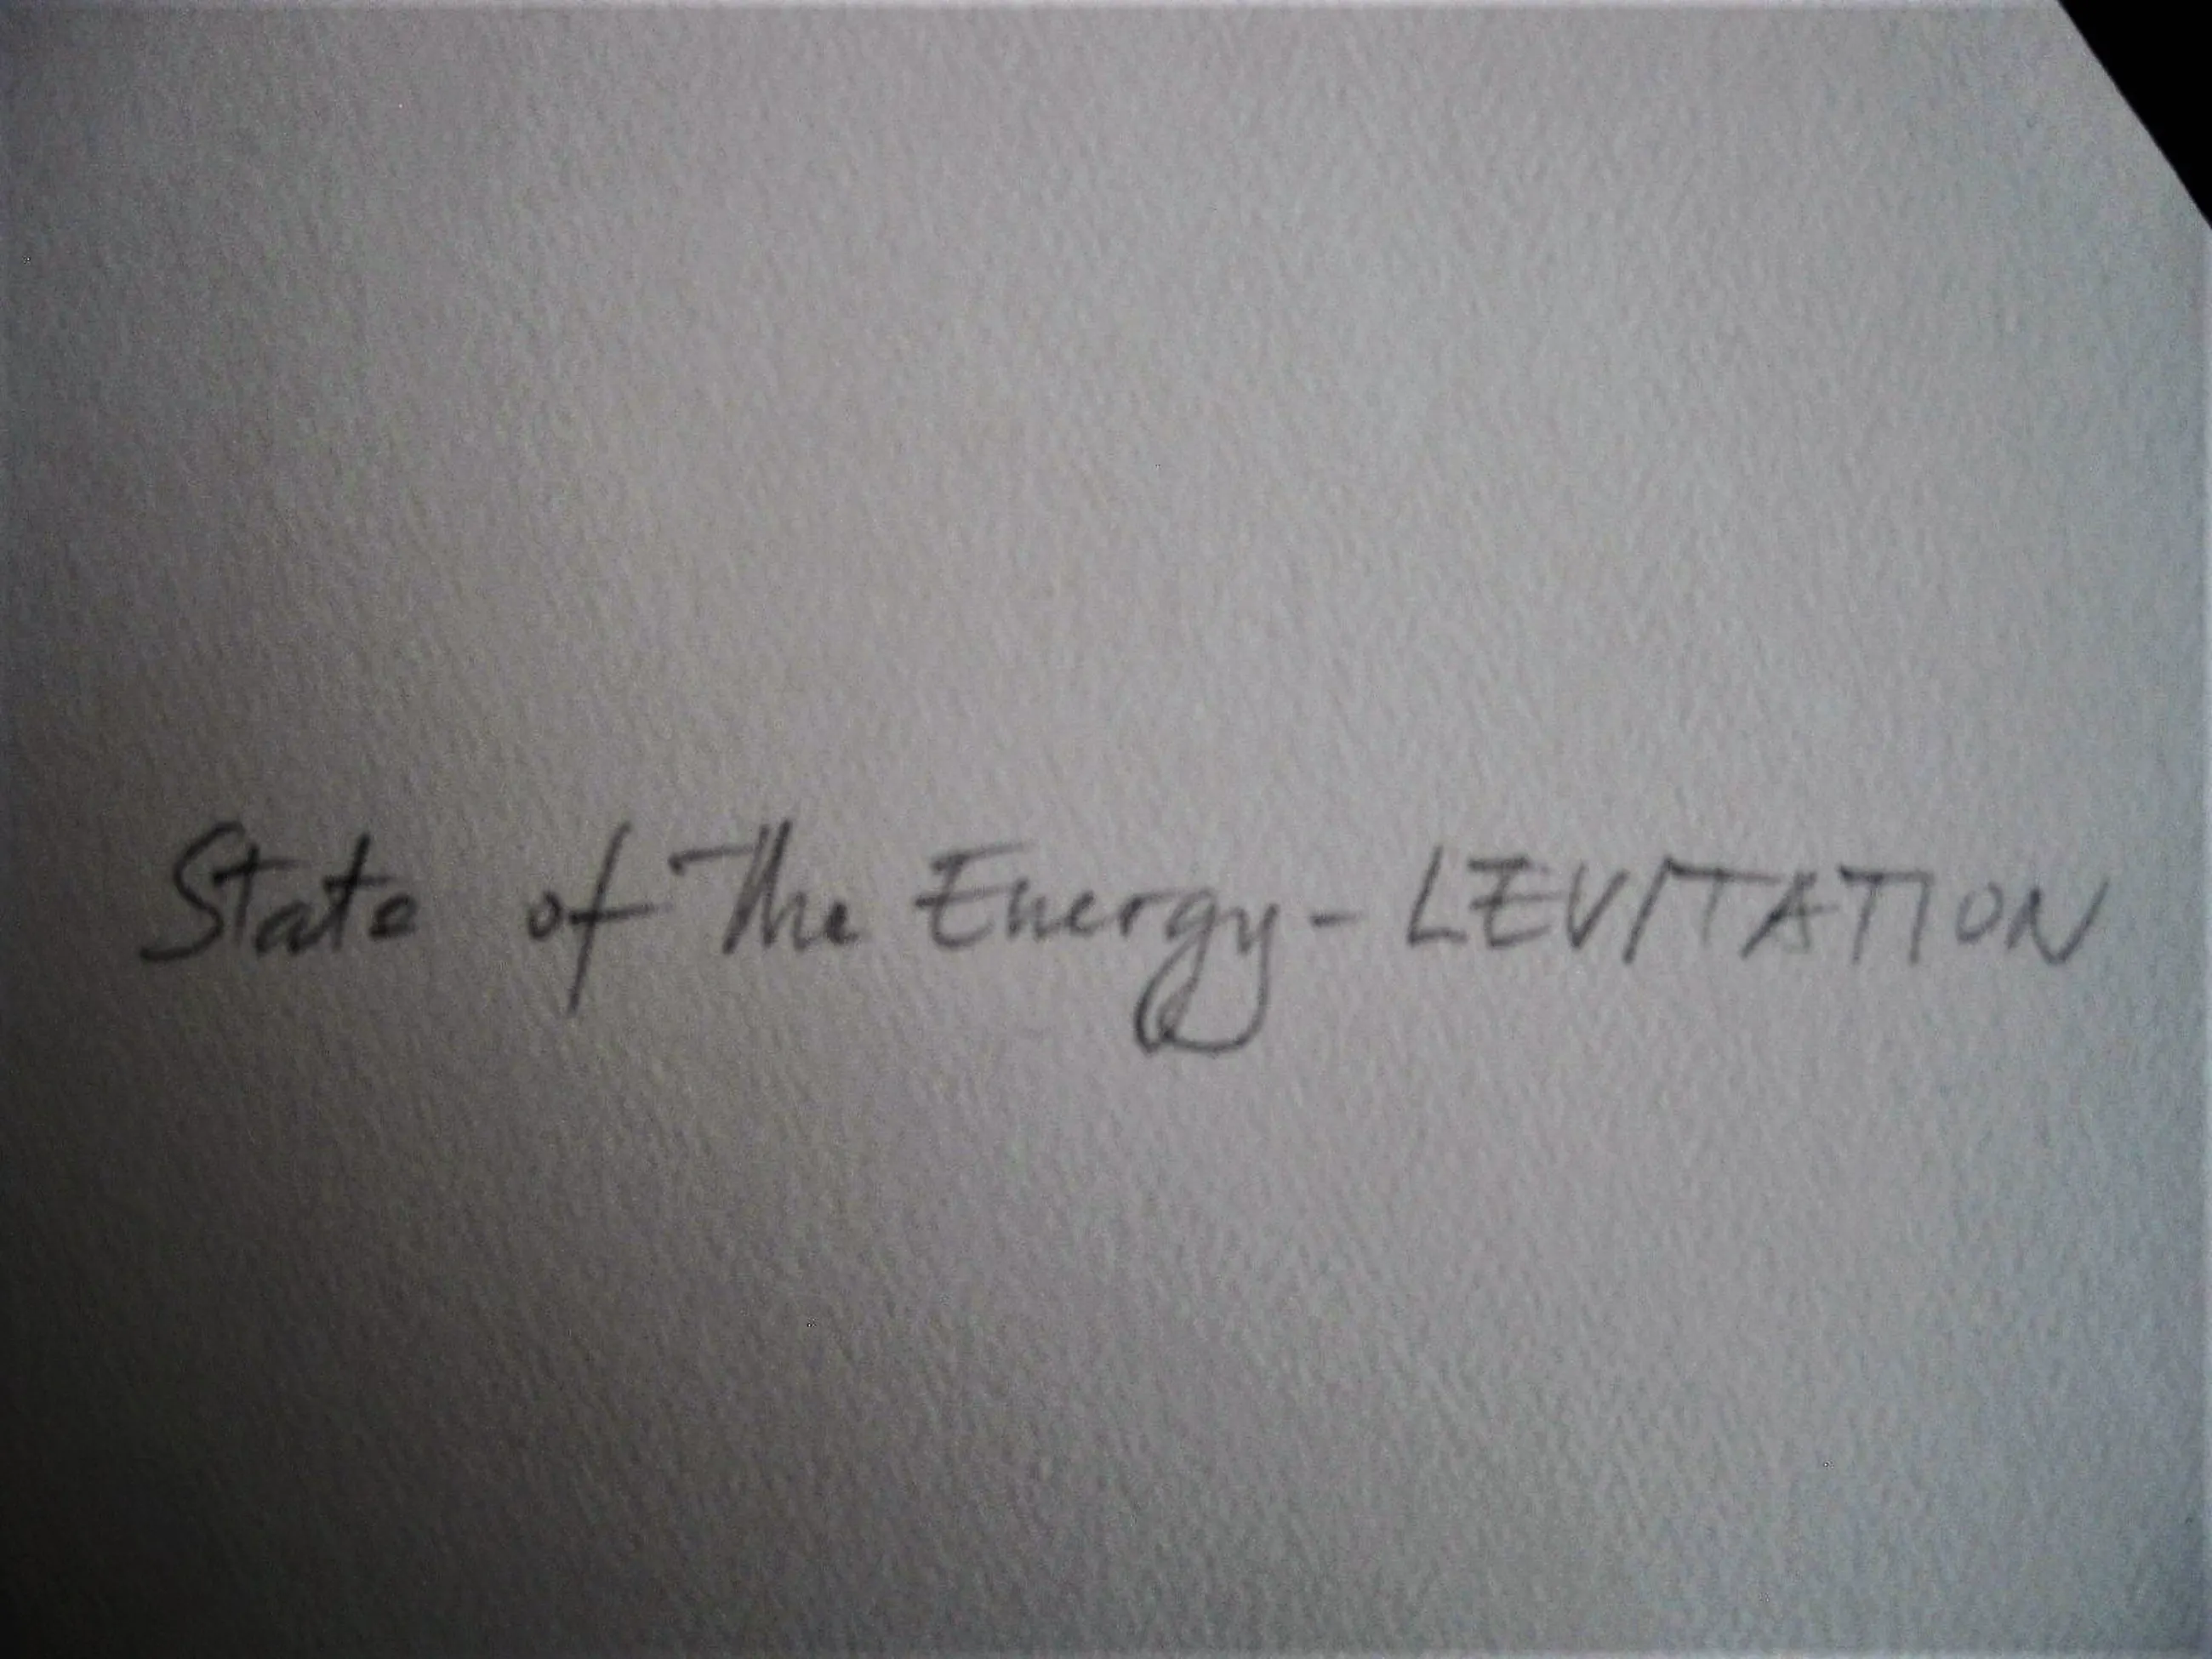 State of The Energy - LEVITATION